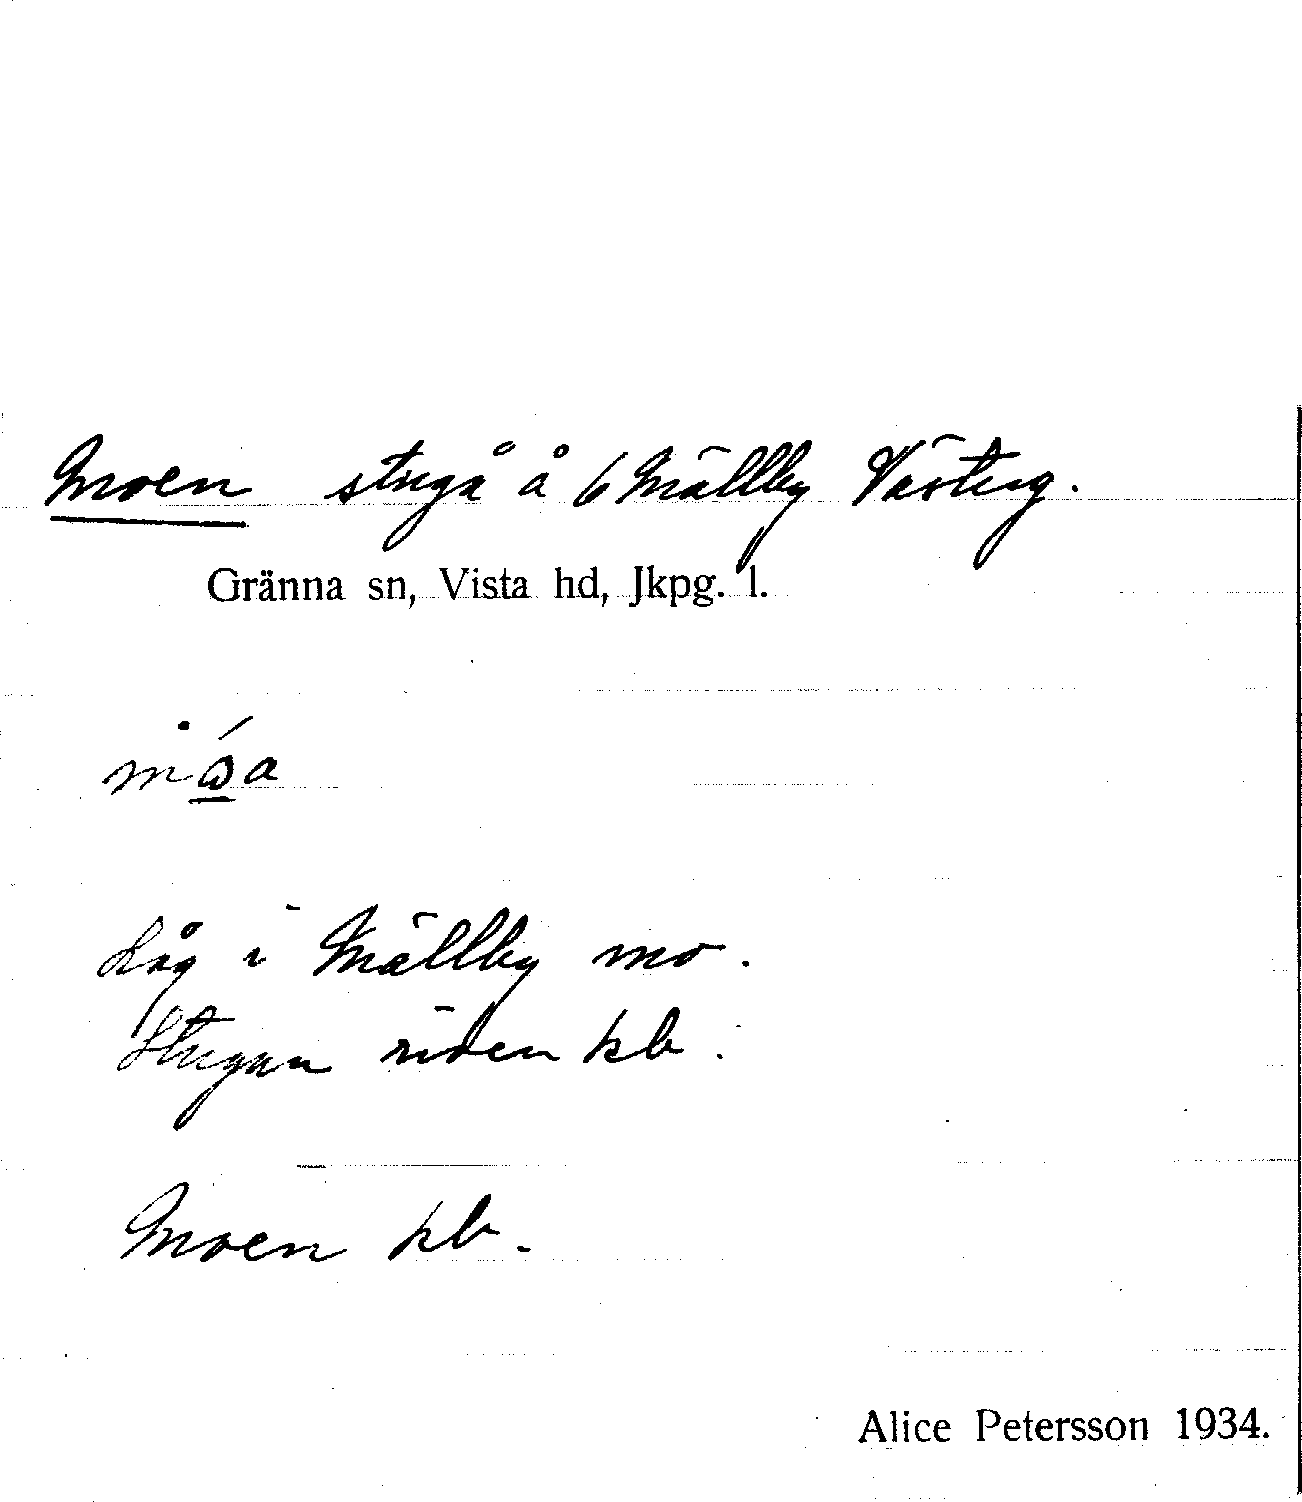 Moen stuga å 6 Mällby Västerg.
Gränna sn, Vista hd, Jkpg. l.
Låg i Mällby mo.
Stugan riven kb.
Moen kb.
Alice Petersson 1934.